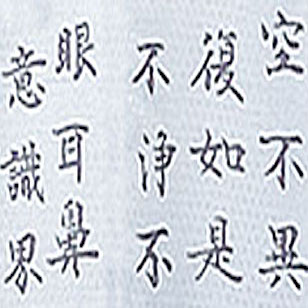 空不異
復如是
不淨不
眼耳鼻
意識界